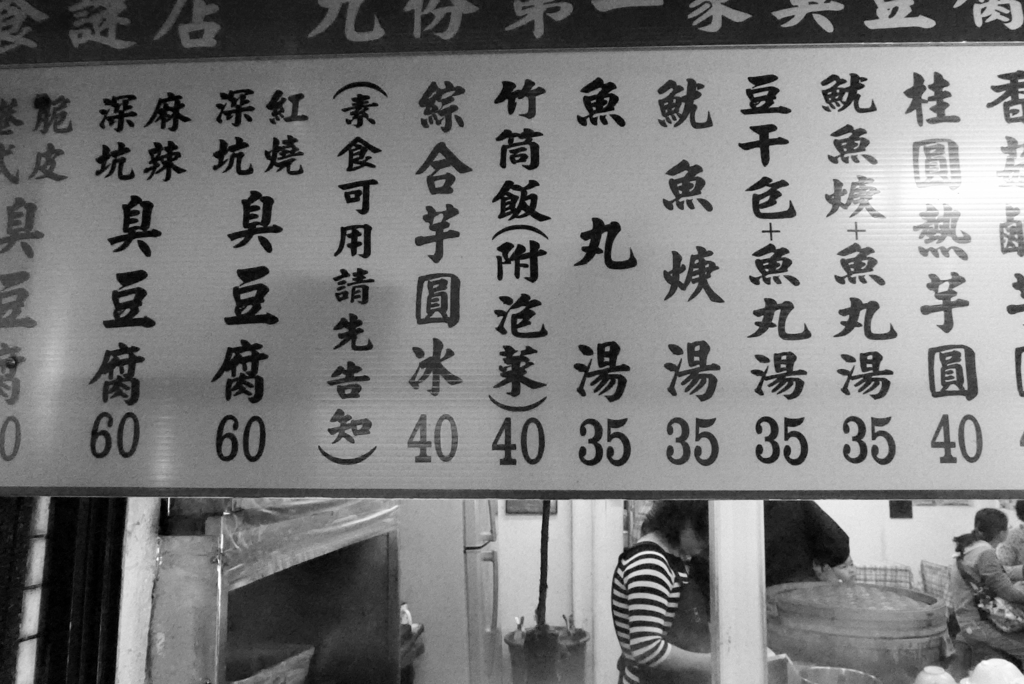 食謎店 九份第一家臭豆腐
香
桂圓熱芋圓 40
魷魚焿+魚丸湯 35
豆干包+魚丸湯 35
魷魚焿湯 35
魚丸湯 35
竹筒飯(附泡菜) 40
綜合芋圓冰 40
(素食可用請先告知)
紅燒深坑臭豆腐 60
麻辣深坑臭豆腐 60
脆皮 式臭豆腐